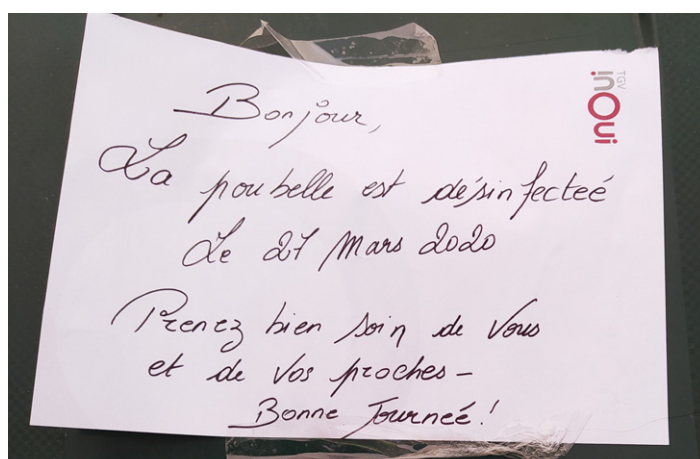 Bonjour,
La poubelle est désinfecteé
Le 27 Mars 2020
Prenez bien soin de Vous
et de Vos proches –
Bonne Journeé!
TGV
inOui